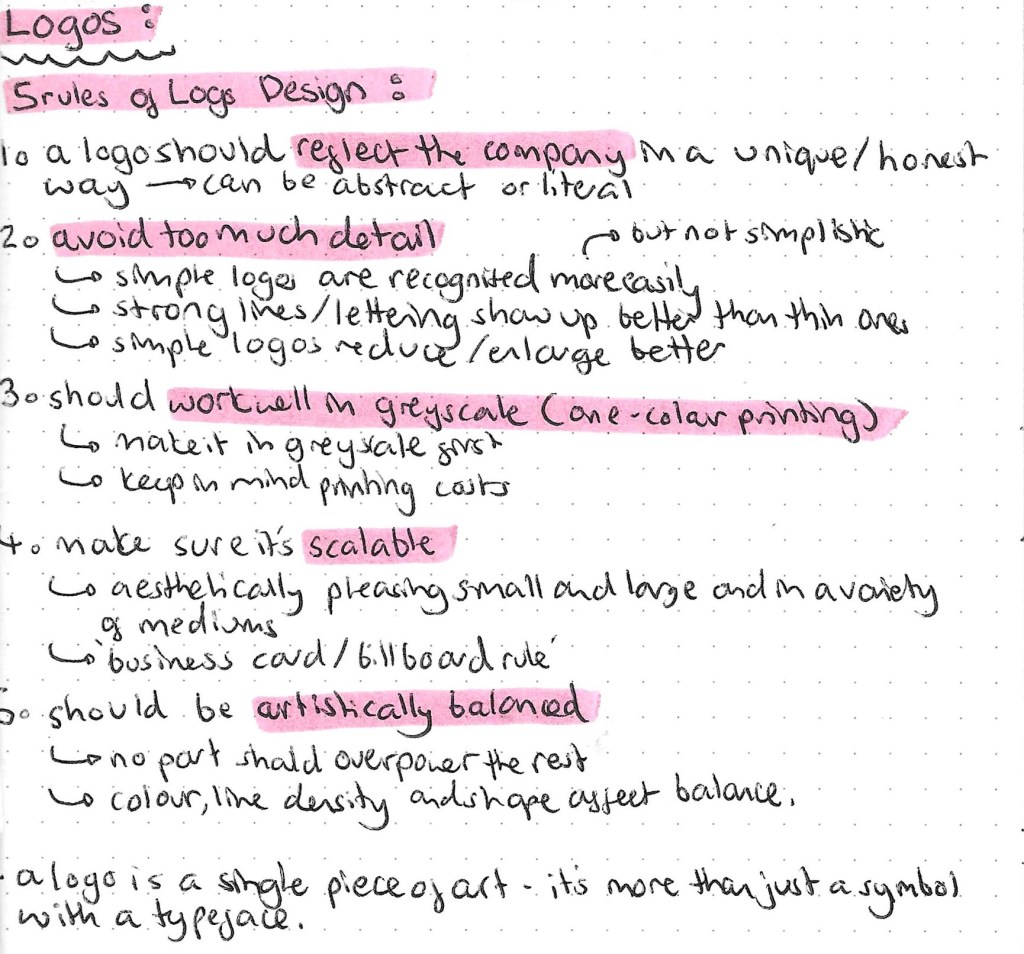 Logos:
5 rules of Logo Design:
1. a logo should reflect the company in a unique/honest
way → can be abstract or literal
2. avoid too much detail
↱ but not simplistic
↳ simple logos are recognised more easily
↳ strong lines/lettering show up better than thin ones
↳ simple logos reduce/enlarge better
3. should work well in greyscale (one-colour printing)
↳ make it in greyscale first
↳ keep in mind printing costs
4. make sure it's scalable
↳ aesthetically pleasing small and large and in a variety
of mediums
↳ 'business card/billboard rule'
5. should be artistically balanced
↳ no part should overpower the rest
↳ colour, line density and shape affect balance.
· a logo is a single piece of art - it's more than just a symbol
with a typeface.